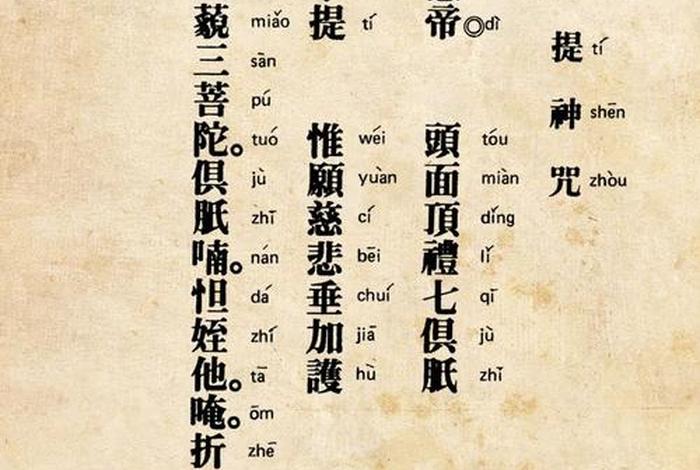 提神咒
tí shēn zhòu
帝◎
dì
頭面頂禮七俱胝
tóu miàn dǐng lǐ qī jù zhī
提
tí
惟願慈悲垂加護
wéi yuàn cí bēi chuí jiā hù
藐三菩陀。俱胝喃。怛姪他。唵。折
miǎo sàn pú tuó jù zhī nán dá zhí tā ōm zhē